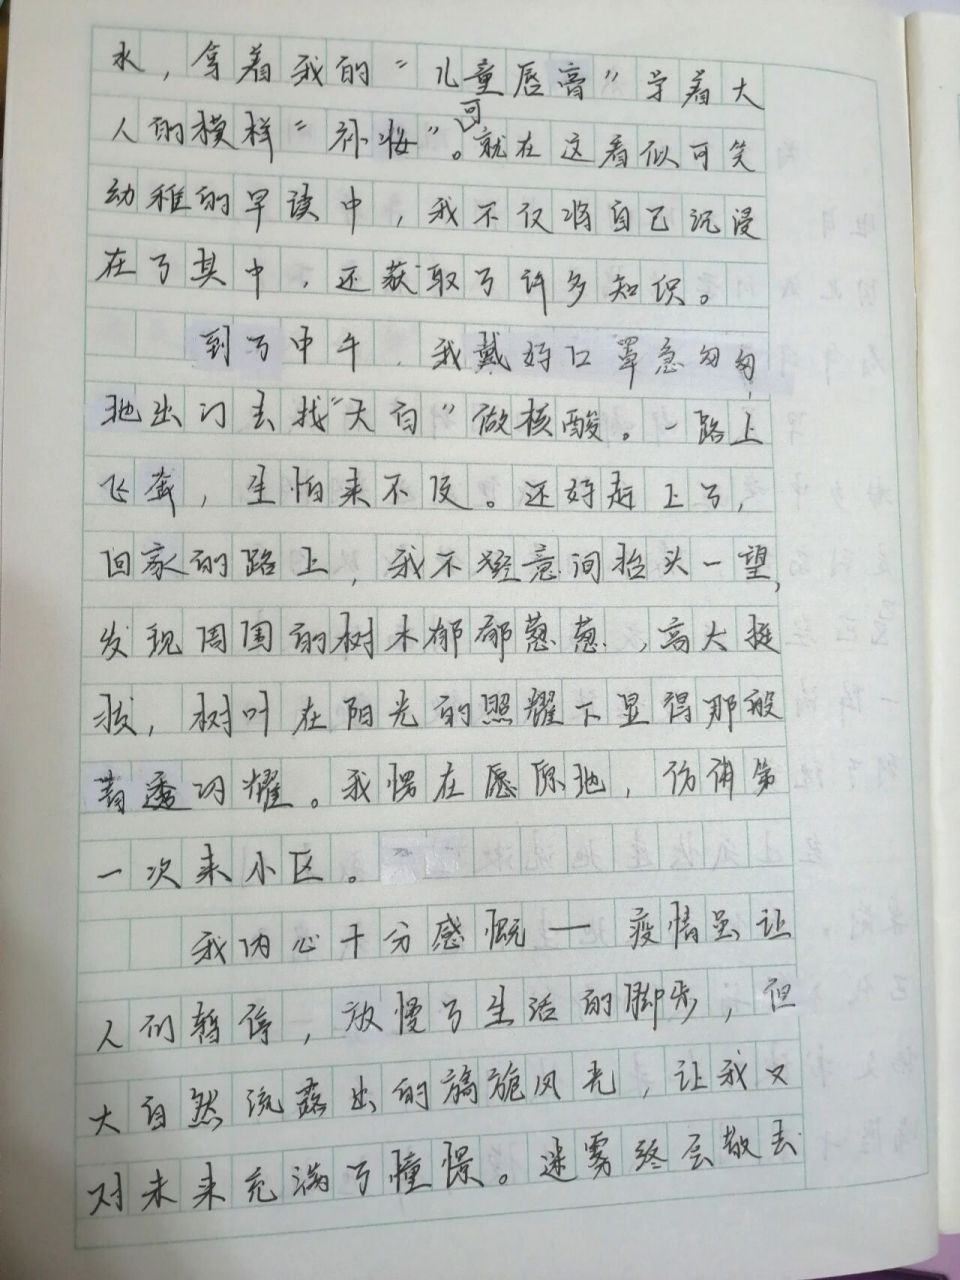 水，拿着我的“儿童唇膏”学着大
人的模样“补妆”。可就在这看似可笑
幼稚的早读中，我不仅将自己沉浸
在了其中，还获取了许多知识。
到了中午，我戴好口罩急匆匆
地出门去找“大白”做核酸。一路上
飞奔，生怕来不及。还好赶上了，
回家的路上，我不经意间抬头一望，
发现周围的树木郁郁葱葱，高大挺
拔，树叶在阳光的照耀下显得那般
青透闪耀。我愣在愿原地，仿佛第
一次来小区。
我内心十分感慨——疫情虽让
人们暂停，放慢了生活的脚步，但
大自然流露出的旖旎风光，让我又
对未来充满了憧憬。迷雾终会散去